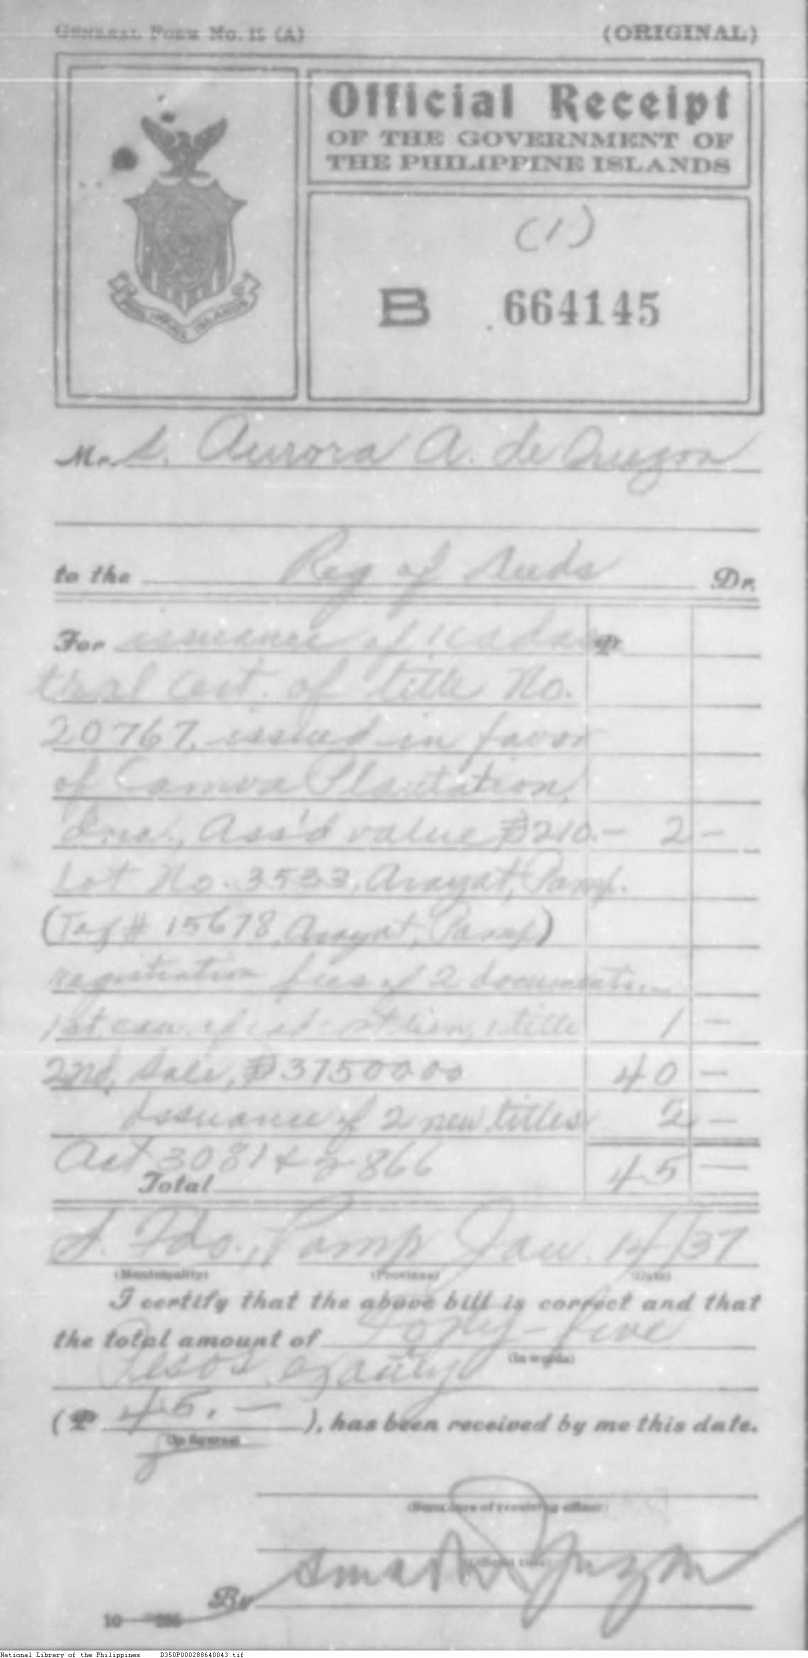 GENERAL FORM NO. 15 (A) (ORIGINAL)
Official Receipt
OF THE GOVERNMENT OF
THE PHILIPPINE ISLANDS
(1)
B 664145
Mrs. Aurora A. de
to the Reg of Deeds Dr.
For issuance of cadas ₱
tral cert. of title No.
20767, issued in favor
of Plantation,
Inc., Ass'd value ₱210.— 2 —
Lot No. 3533, Arayat, Pamp.
(Tax # 15678, Arayat, Pamp)
registration fees of 2 documents
1st, title 1 —
2nd, Sale, ₱37500.00 40 —
Issuance of 2 new titles 2 —
Act 3081 & 2866
Total 45 —
S. Fdo., Pamp Jan. /37
(Municipality) (Province) (Date)
I certify that the above bill is correct and that
the total amount of Forty-five
(In words)
Pesos exactly
(₱ 45.— ), has been received by me this date.
(In figures)
(Signature of receiving officer)
(Official title)
By
National Library of the Philippines D350P000288640043.tif